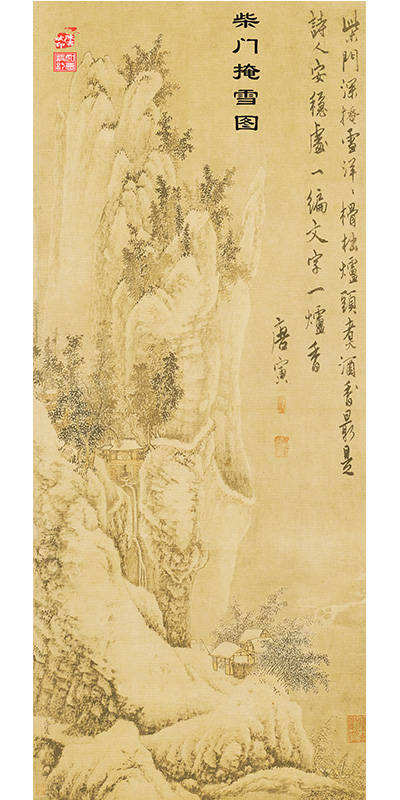 柴门掩雪图
柴門深掩雪洋〻榾柮爐頭煮酒香最是
詩人安穩處一編文字一爐香
唐寅